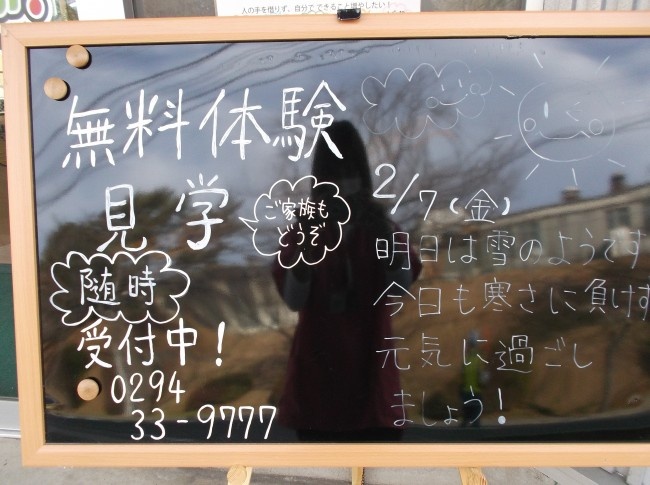 人の手を借りず、自分でできること増やしたい!
無料体験
見学
ご家族も
どうぞ
随時
受付中!
0294
33-9777
2/7(金)
明日は雪のようです
今日も寒さに負けず
元気に過ごし
ましょう!